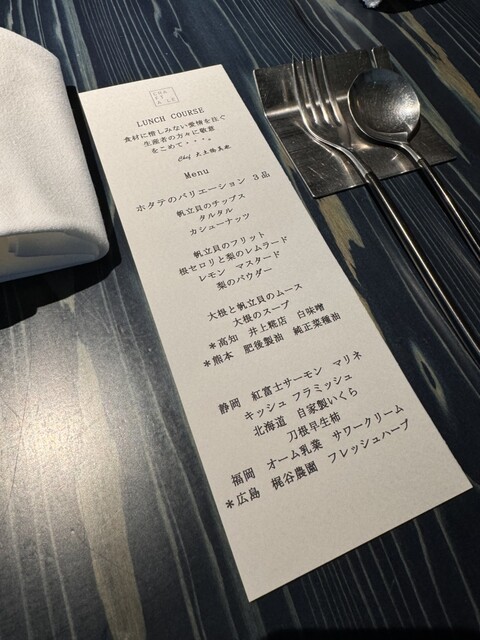 LUNCH COURSE
食材に惜しみない愛情を注ぐ
生産者の方々に敬意
をこめて・・・。
Chef
Menu
ホタテのバリエーション 3品
帆立貝のチップス
タルタル
カシューナッツ
帆立貝のフリット
根セロリと梨のレムラード
レモン マスタード
梨のパウダー
大根と帆立貝のムース
大根のスープ
*高知 井上糀店 白味噌
*熊本 肥後製油 純正菜種油
静岡 紅富士サーモン マリネ
キッシュ フラミッシュ
北海道 自家製いくら
刀根早生柿
福岡 オーム乳業 サワークリーム
*広島 梶谷農園 フレッシュハーブ